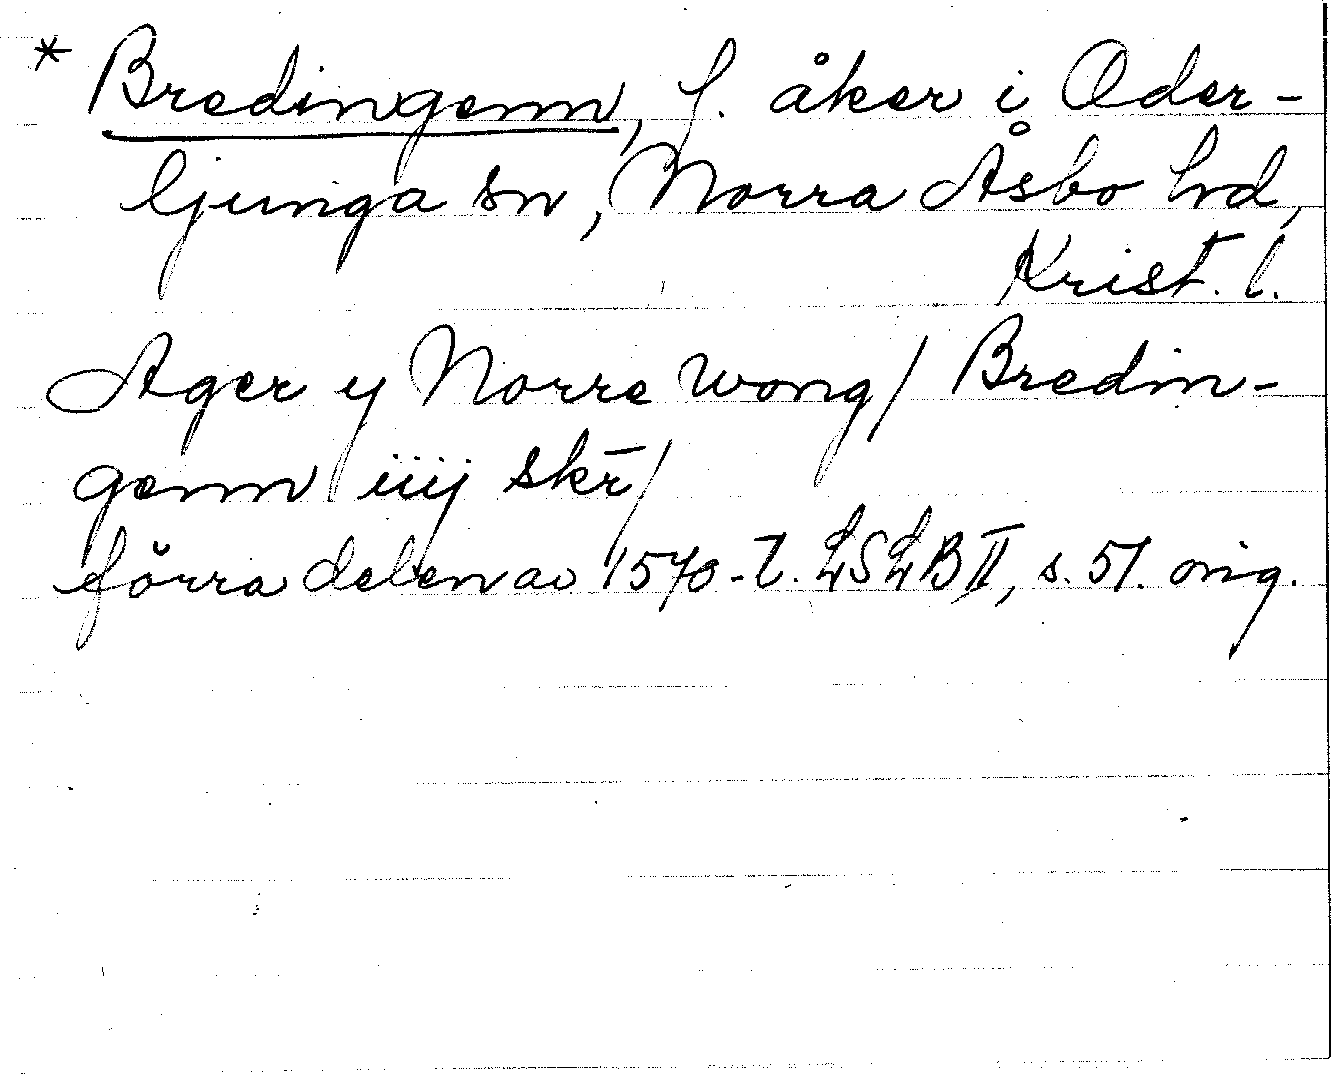 * Bredingenn, f. åker i Oder-
ljunga sn, Norra Åsbo hd,
Krist. l.
Ager y Norre wong / Bredin-
genn iiij skr̄ /
förra delen av 1570-t. LSLB II, s. 51. orig.